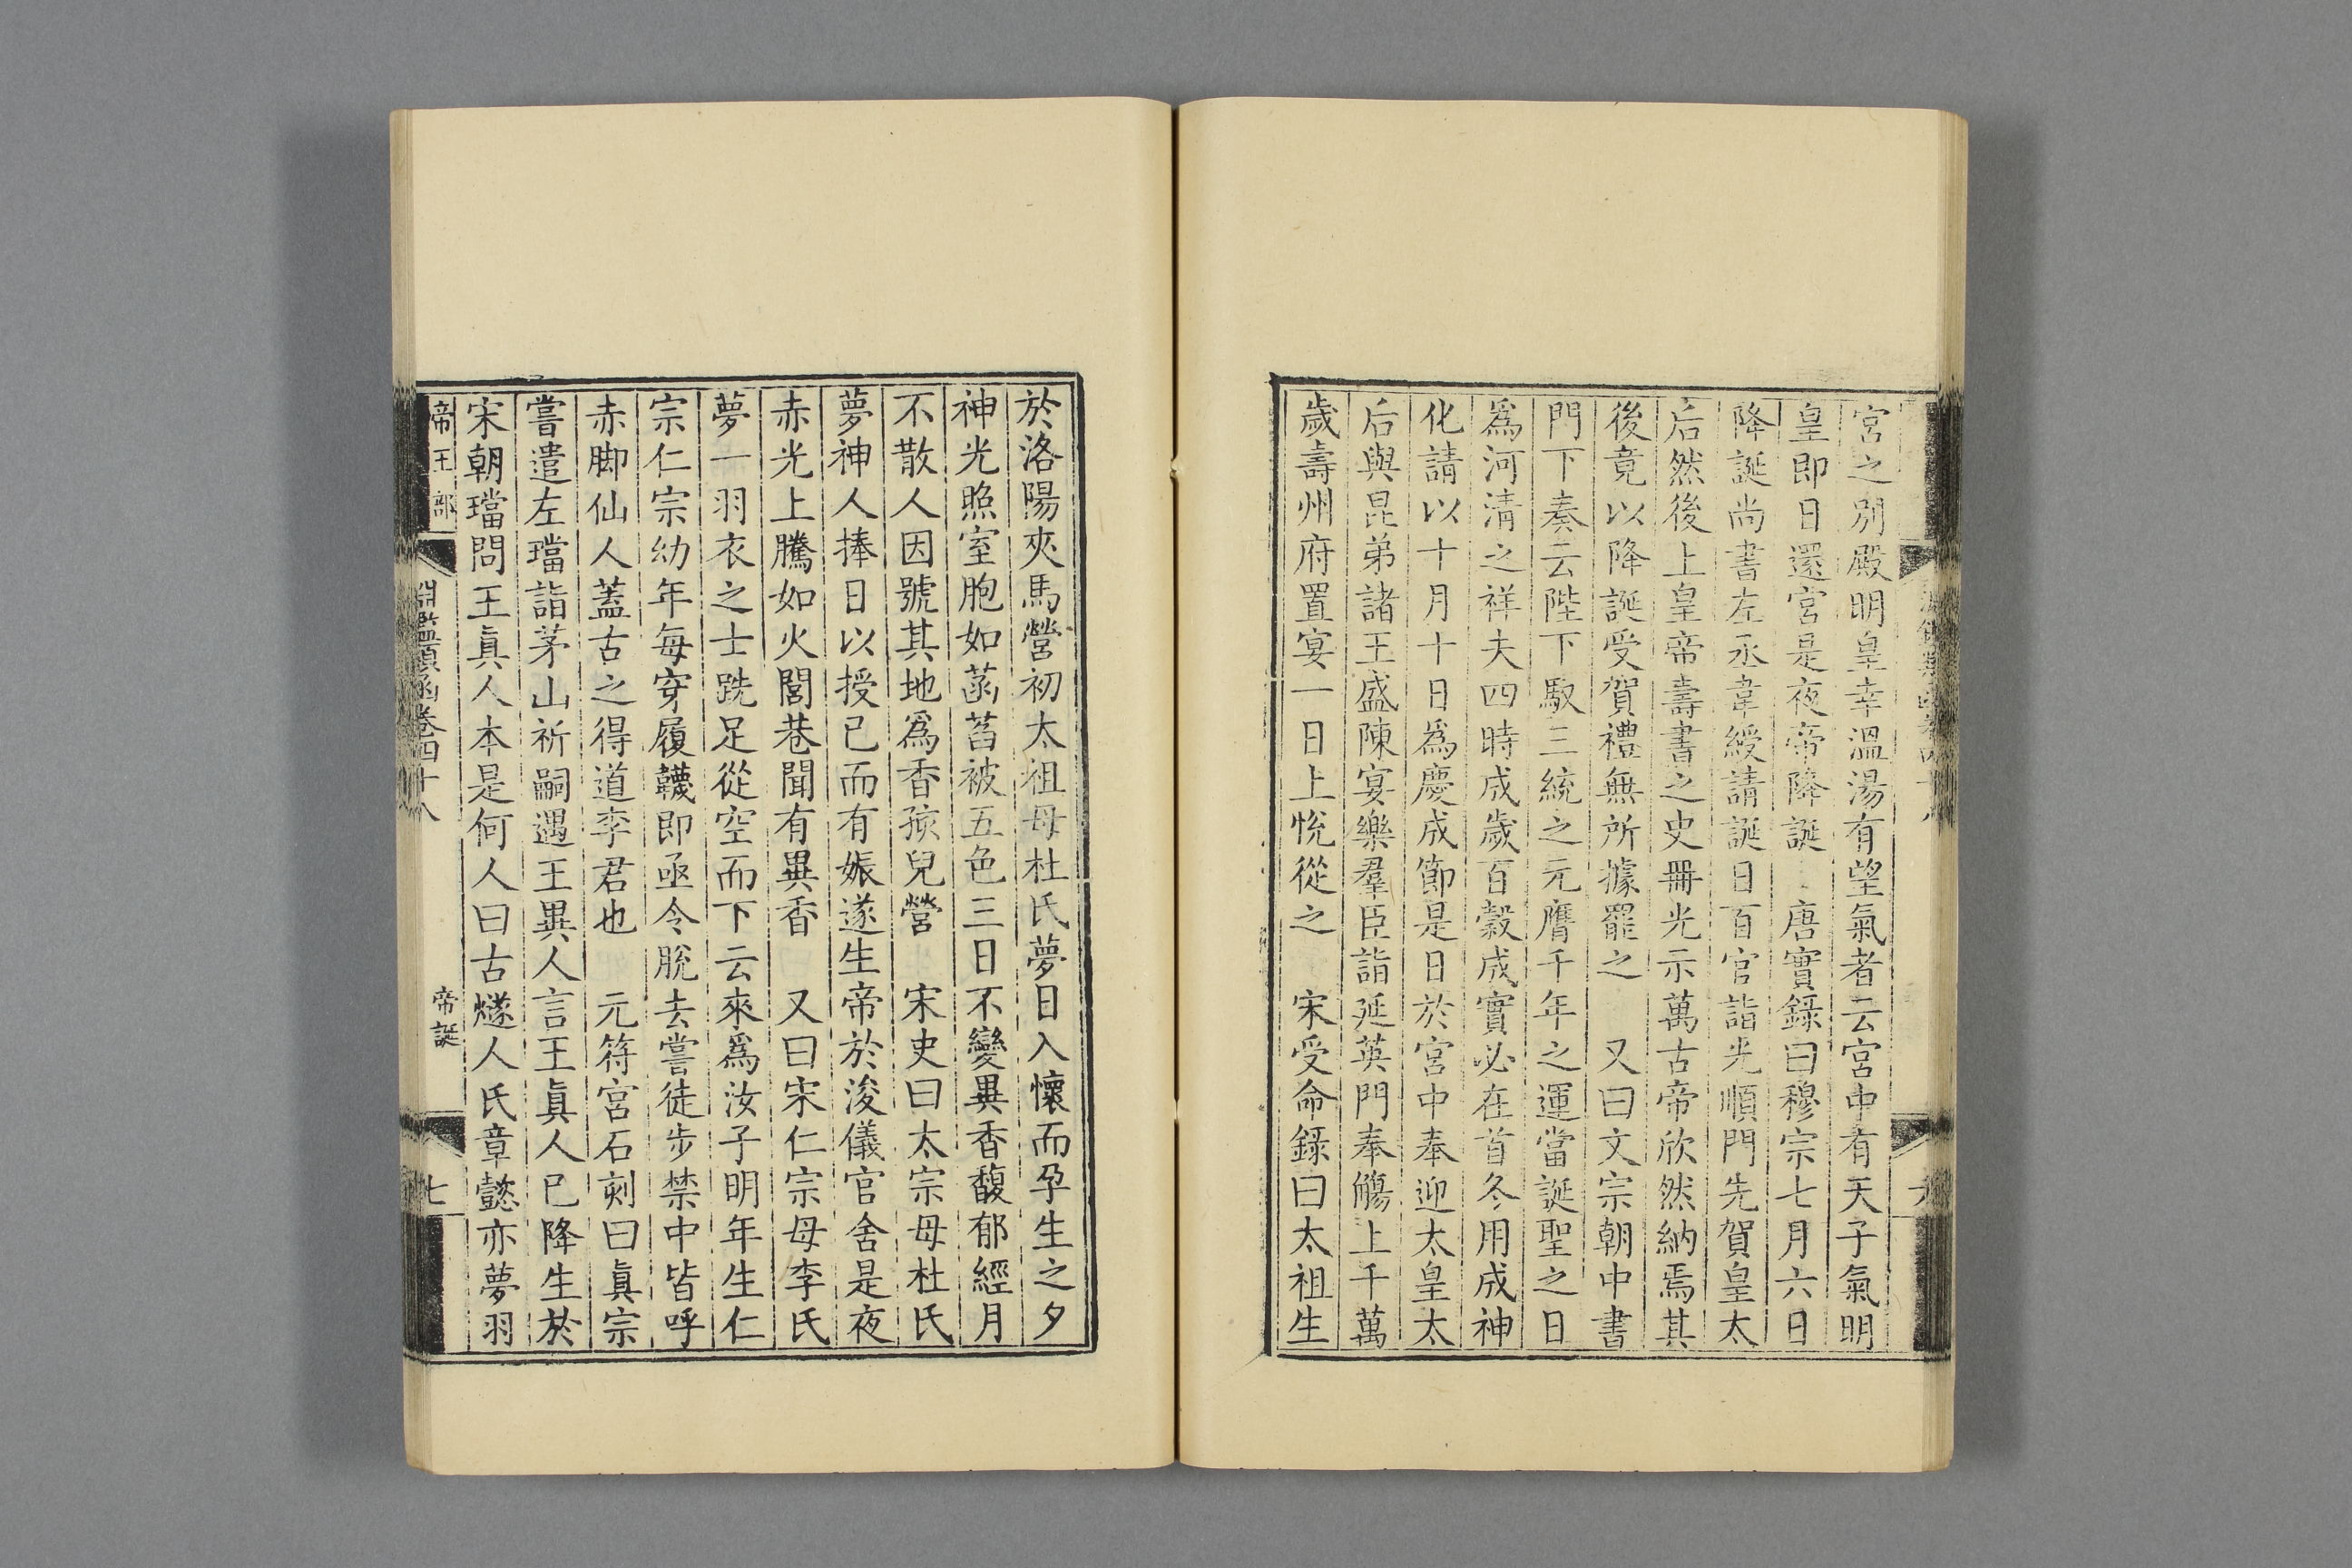 宮之別殿明皇幸溫湯有望氣者云宮中有天子氣明
皇即日還宮是夜帝降誕　唐實錄曰穆宗七月六日
降誕尚書左丞韋綬請誕日百官詣光順門先賀皇太
后然後上皇帝壽書之史冊光示萬古帝欣然納焉其
後竟以降誕受賀禮無所據罷之　又曰文宗朝中書
門下奏云陛下馭三統之元膺千年之運當誕聖之日
爲河清之祥夫四時成歲百穀成實必在首冬用成神
化請以十月十日爲慶成節是日於宮中奉迎太皇太
后與昆弟諸王盛陳宴樂羣臣詣延英門奉觴上千萬
歲壽州府置宴一日上悅從之　宋受命錄曰太祖生
於洛陽夾馬營初太祖母杜氏夢日入懷而孕生之夕
神光照室胞如菡萏被五色三日不變異香馥郁經月
不散人因號其地爲香孩兒營　宋史曰太宗母杜氏
夢神人捧日以授已而有娠遂生帝於浚儀官舍是夜
赤光上騰如火閭巷聞有異香　又曰宋仁宗母李氏
夢一羽衣之士跣足從空而下云來爲汝子明年生仁
宗仁宗幼年每穿履韈即亟令脫去嘗徒步禁中皆呼
赤脚仙人蓋古之得道李君也　元符宮石刻曰眞宗
嘗遣左璫詣茅山祈嗣遇王異人言王眞人已降生於
宋朝璫問王眞人本是何人曰古燧人氏章懿亦夢羽
帝王部
淵鑑類函卷四十八
帝誕
七